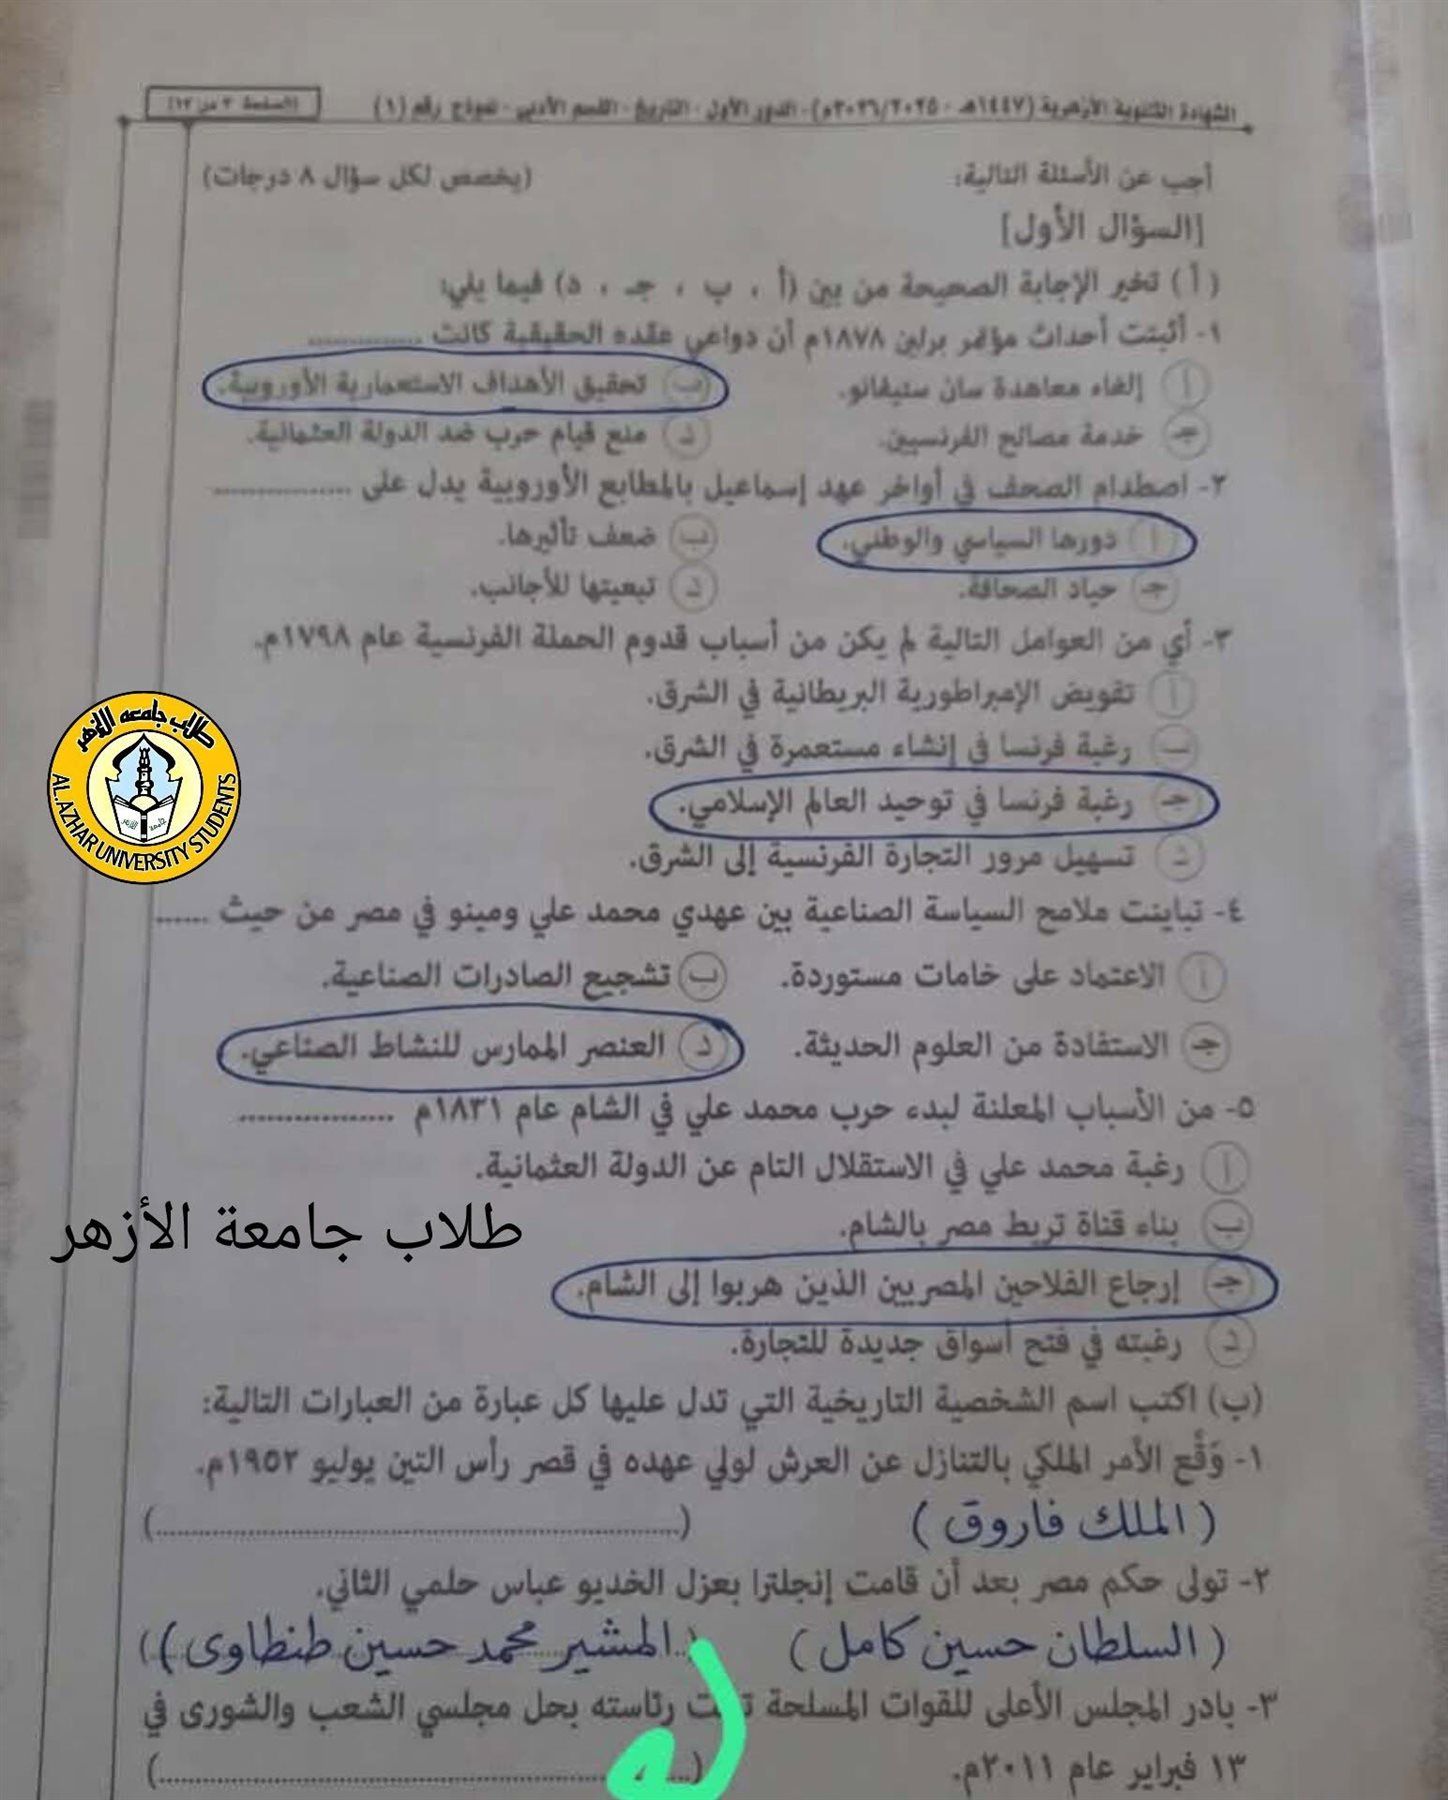 الشهادة الثانوية الأزهرية (١٤٤٧هـ - ٢٠٢٥/٢٠٢٦م) - الدور الأول - التاريخ - القسم الأدبي - نموذج رقم (١)
(الصفحة ٢ من ١٢)
أجب عن الأسئلة التالية: (يخصص لكل سؤال ٨ درجات)
[السؤال الأول]
(أ) تخير الإجابة الصحيحة من بين (أ ، ب ، جـ ، د) فيما يلي:
١- أثبتت أحداث مؤتمر برلين ١٨٧٨م أن دواعي عقده الحقيقية كانت ..............
أ إلغاء معاهدة سان ستيفانو. ب تحقيق الأهداف الاستعمارية الأوروبية.
جـ خدمة مصالح الفرنسيين. د منع قيام حرب ضد الدولة العثمانية.
٢- اصطدام الصحف في أواخر عهد إسماعيل بالمطابع الأوروبية يدل على ................
أ دورها السياسي والوطني. ب ضعف تأثيرها.
جـ حياد الصحافة. د تبعيتها للأجانب.
٣- أي من العوامل التالية لم يكن من أسباب قدوم الحملة الفرنسية عام ١٧٩٨م.
أ تقويض الإمبراطورية البريطانية في الشرق.
ب رغبة فرنسا في إنشاء مستعمرة في الشرق.
جـ رغبة فرنسا في توحيد العالم الإسلامي.
د تسهيل مرور التجارة الفرنسية إلى الشرق.
طلاب جامعة الأزهر
AL.AZHAR UNIVERSITY STUDENTS
٤- تباينت ملامح السياسة الصناعية بين عهدي محمد علي ومينو في مصر من حيث ......
أ الاعتماد على خامات مستوردة. ب تشجيع الصادرات الصناعية.
جـ الاستفادة من العلوم الحديثة. د العنصر الممارس للنشاط الصناعي.
٥- من الأسباب المعلنة لبدء حرب محمد علي في الشام عام ١٨٣١م ..................
أ رغبة محمد علي في الاستقلال التام عن الدولة العثمانية.
ب بناء قناة تربط مصر بالشام.
طلاب جامعة الأزهر
جـ إرجاع الفلاحين المصريين الذين هربوا إلى الشام.
د رغبته في فتح أسواق جديدة للتجارة.
(ب) اكتب اسم الشخصية التاريخية التي تدل عليها كل عبارة من العبارات التالية:
١- وَقَّع الأمر الملكي بالتنازل عن العرش لولي عهده في قصر رأس التين يوليو ١٩٥٢م.
( الملك فاروق ) (............................................................)
٢- تولى حكم مصر بعد أن قامت إنجلترا بعزل الخديو عباس حلمي الثاني.
( السلطان حسين كامل ) (المشير محمد حسين طنطاوى)
٣- بادر المجلس الأعلى للقوات المسلحة تحت رئاسته بحل مجلسي الشعب والشورى في
١٣ فبراير عام ٢٠١١م. (............................................................)